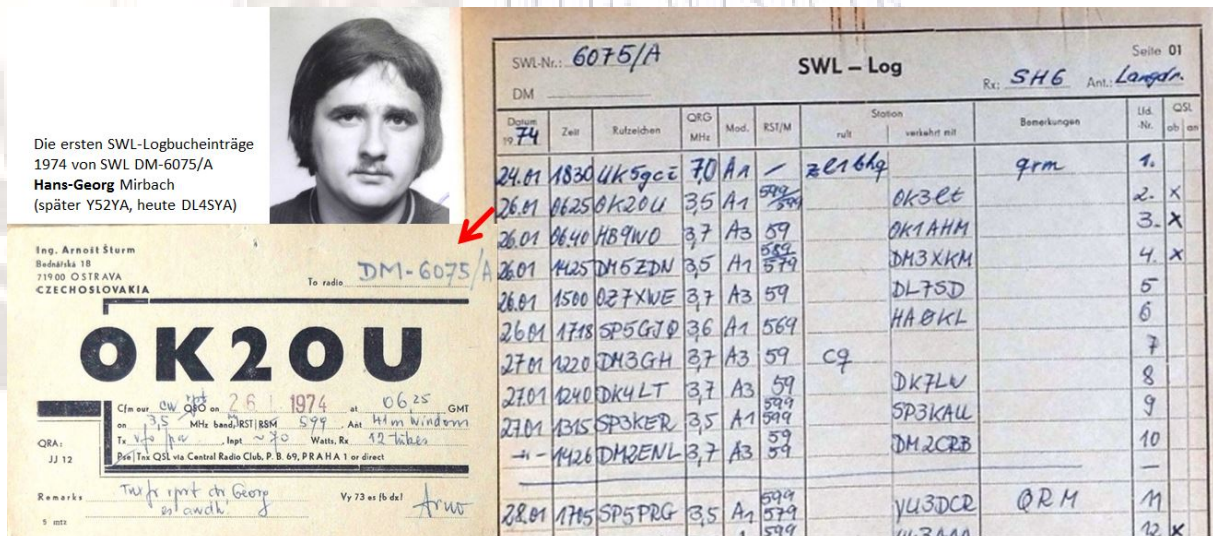 Die ersten SWL-Logbucheinträge
1974 von SWL DM-6075/A
Hans-Georg Mirbach
(später Y52YA, heute DL4SYA)
Ing. Arnošt Šturm
Bednářská 18
71900 OSTRAVA
CZECHOSLOVAKIA
To radio DM-6075/A
OK2OU
Cfm our CW rpt QSO on 26. I. 1974 at 06,25 GMT
on 3,5 MHz band, RST|RSM 599 . Ant 41m Windom
Tx vfo pa . Inpt ~70 Watts, Rx 12 tubes
QRA:
JJ 12
Pse|Tnx QSL via Central Radio Club, P. B. 69, PRAHA 1 or direct
Remarks Tnx fr rprt dr Georg
es awdh!
Vy 73 es fb dx! Arno
5 mtz
SWL-Nr.: 6075/A
SWL – Log
Seite 01
DM
Rx: SH6 Ant.: Langdr.
Datum 1974 Zeit Rufzeichen QRG MHz Mod. RST/M Station ruft verkehrt mit Bemerkungen Lfd. Nr. QSL ab an
24.01 1830 UK5gci 7,0 A1 – zl1bhq qrm 1.
26.01 0625 OK2OU 3,5 A1 599/599 OK3lt 2. x
26.01 0640 HB9WO 3,7 A3 59 OK1AHM 3. x
26.01 1425 DM5ZDN 3,5 A1 589 579 DM3XKM 4. x
26.01 1500 OZ7XWE 3,7 A3 59 DL7SD 5
26.01 1718 SP5GJQ 3,6 A1 569 HAØKL 6
27.01 1220 DM3GH 3,7 A3 59 cq 7
27.01 1240 DK4LT 3,7 A3 59 DK7LW 8
27.01 1315 SP3KER 3,5 A1 599 599 SP3KAU 9
-"- 1426 DM2ENL 3,7 A3 59 59 DM2CRB 10
–
28.01 1705 SP5PRG 3,5 A1 599 579 YU3DCR QRM 11
599 12 x